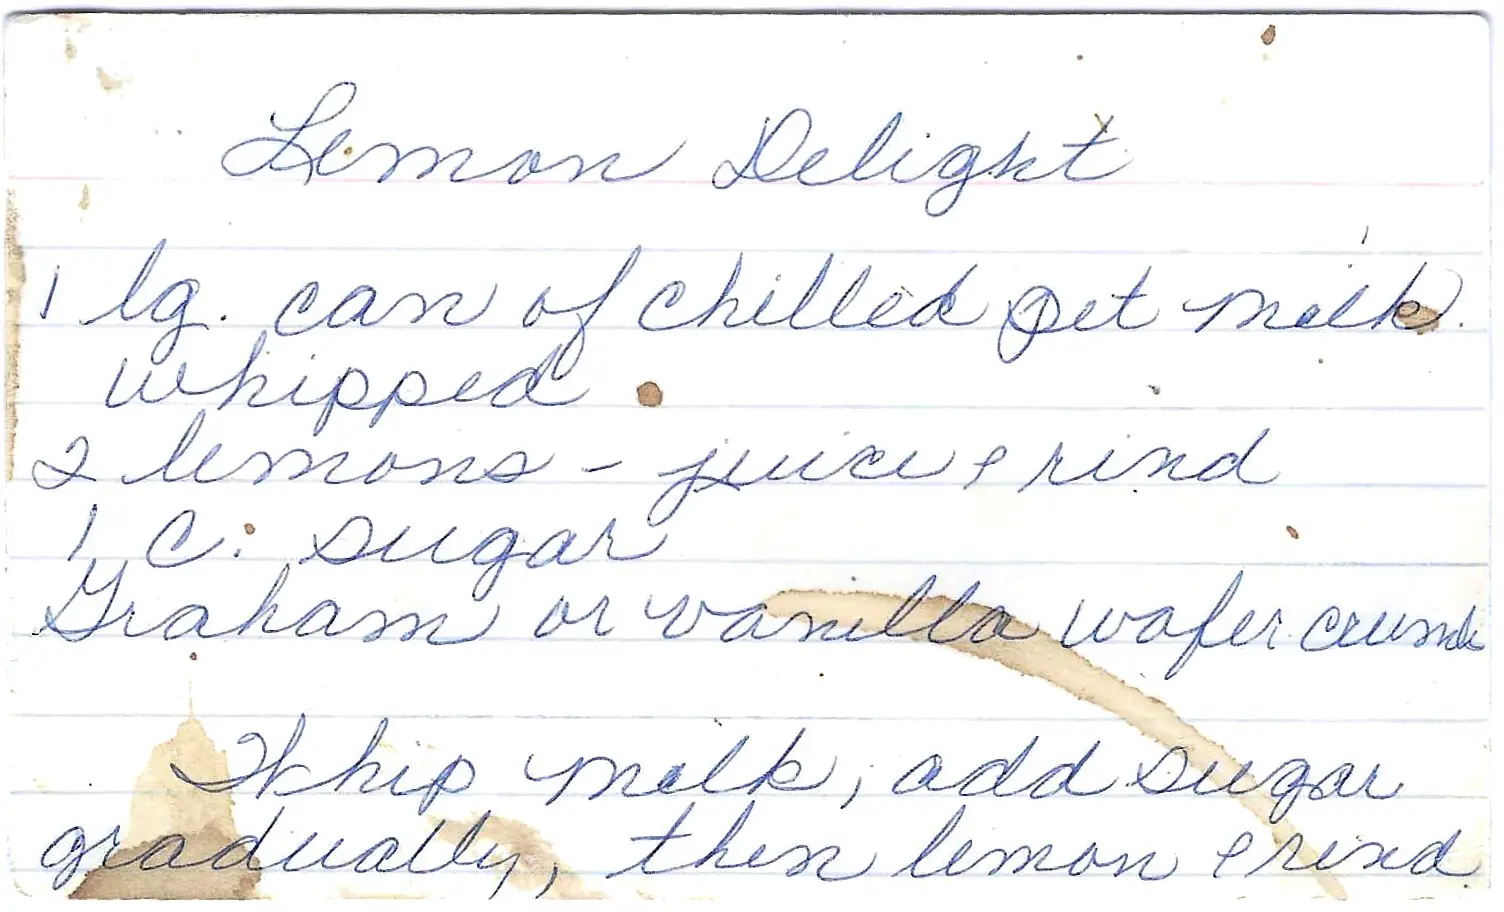 Lemon Delight
1 lg. can of chilled Pet Milk
whipped
2 lemons - juice & rind
1 c. sugar
Graham or vanilla wafer crumbs
Whip milk, add sugar
gradually, then lemon & rind